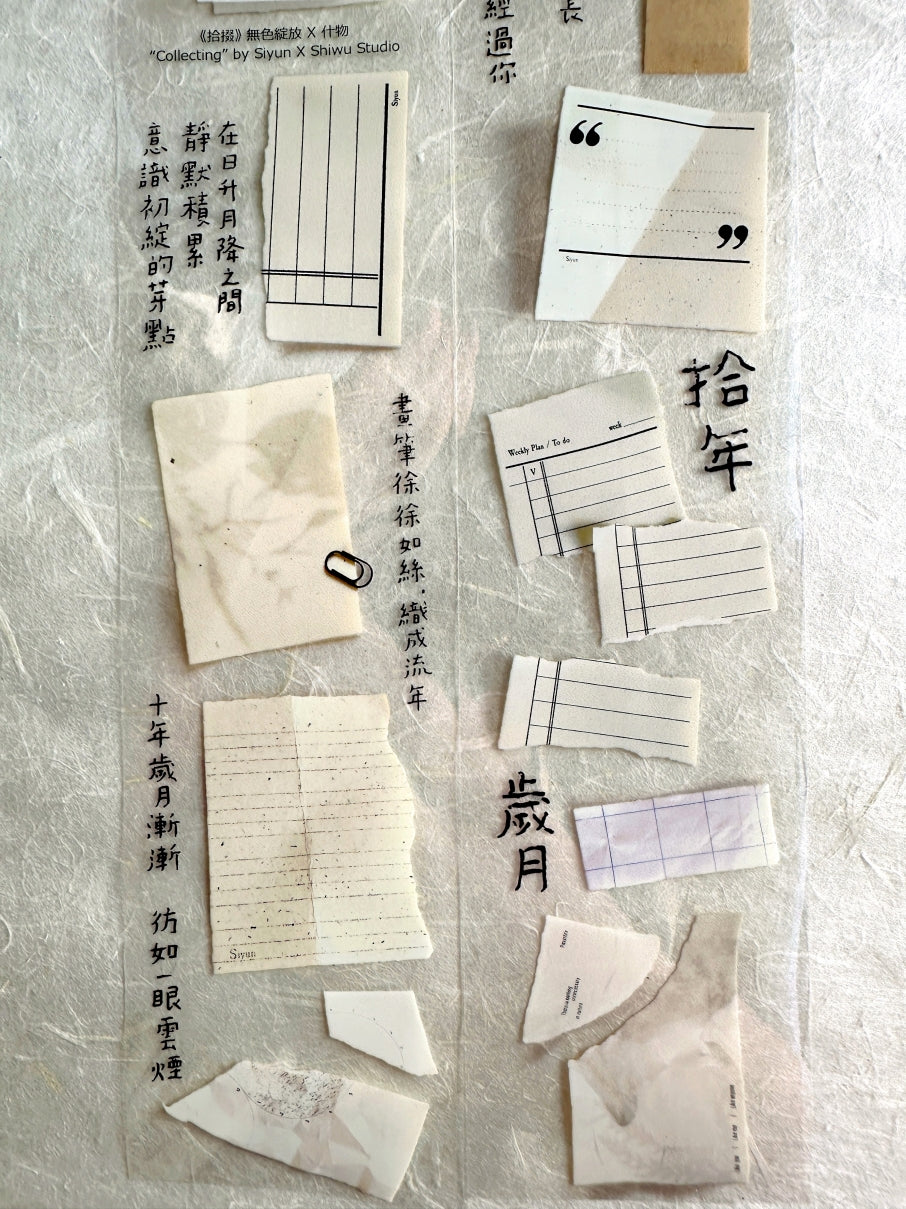 《拾掇》無色綻放 X 什物
“Collecting” by Siyun X Shiwu Studio
長
經過你
Siyun
在日升月降之間
靜默積累
意識初綻的芽點
“
”
Siyun
拾年
Weekly Plan / To do
week
V
畫筆徐徐如絲，織成流年
十年歲月漸漸 彷如一眼雲煙
Siyun
歲月